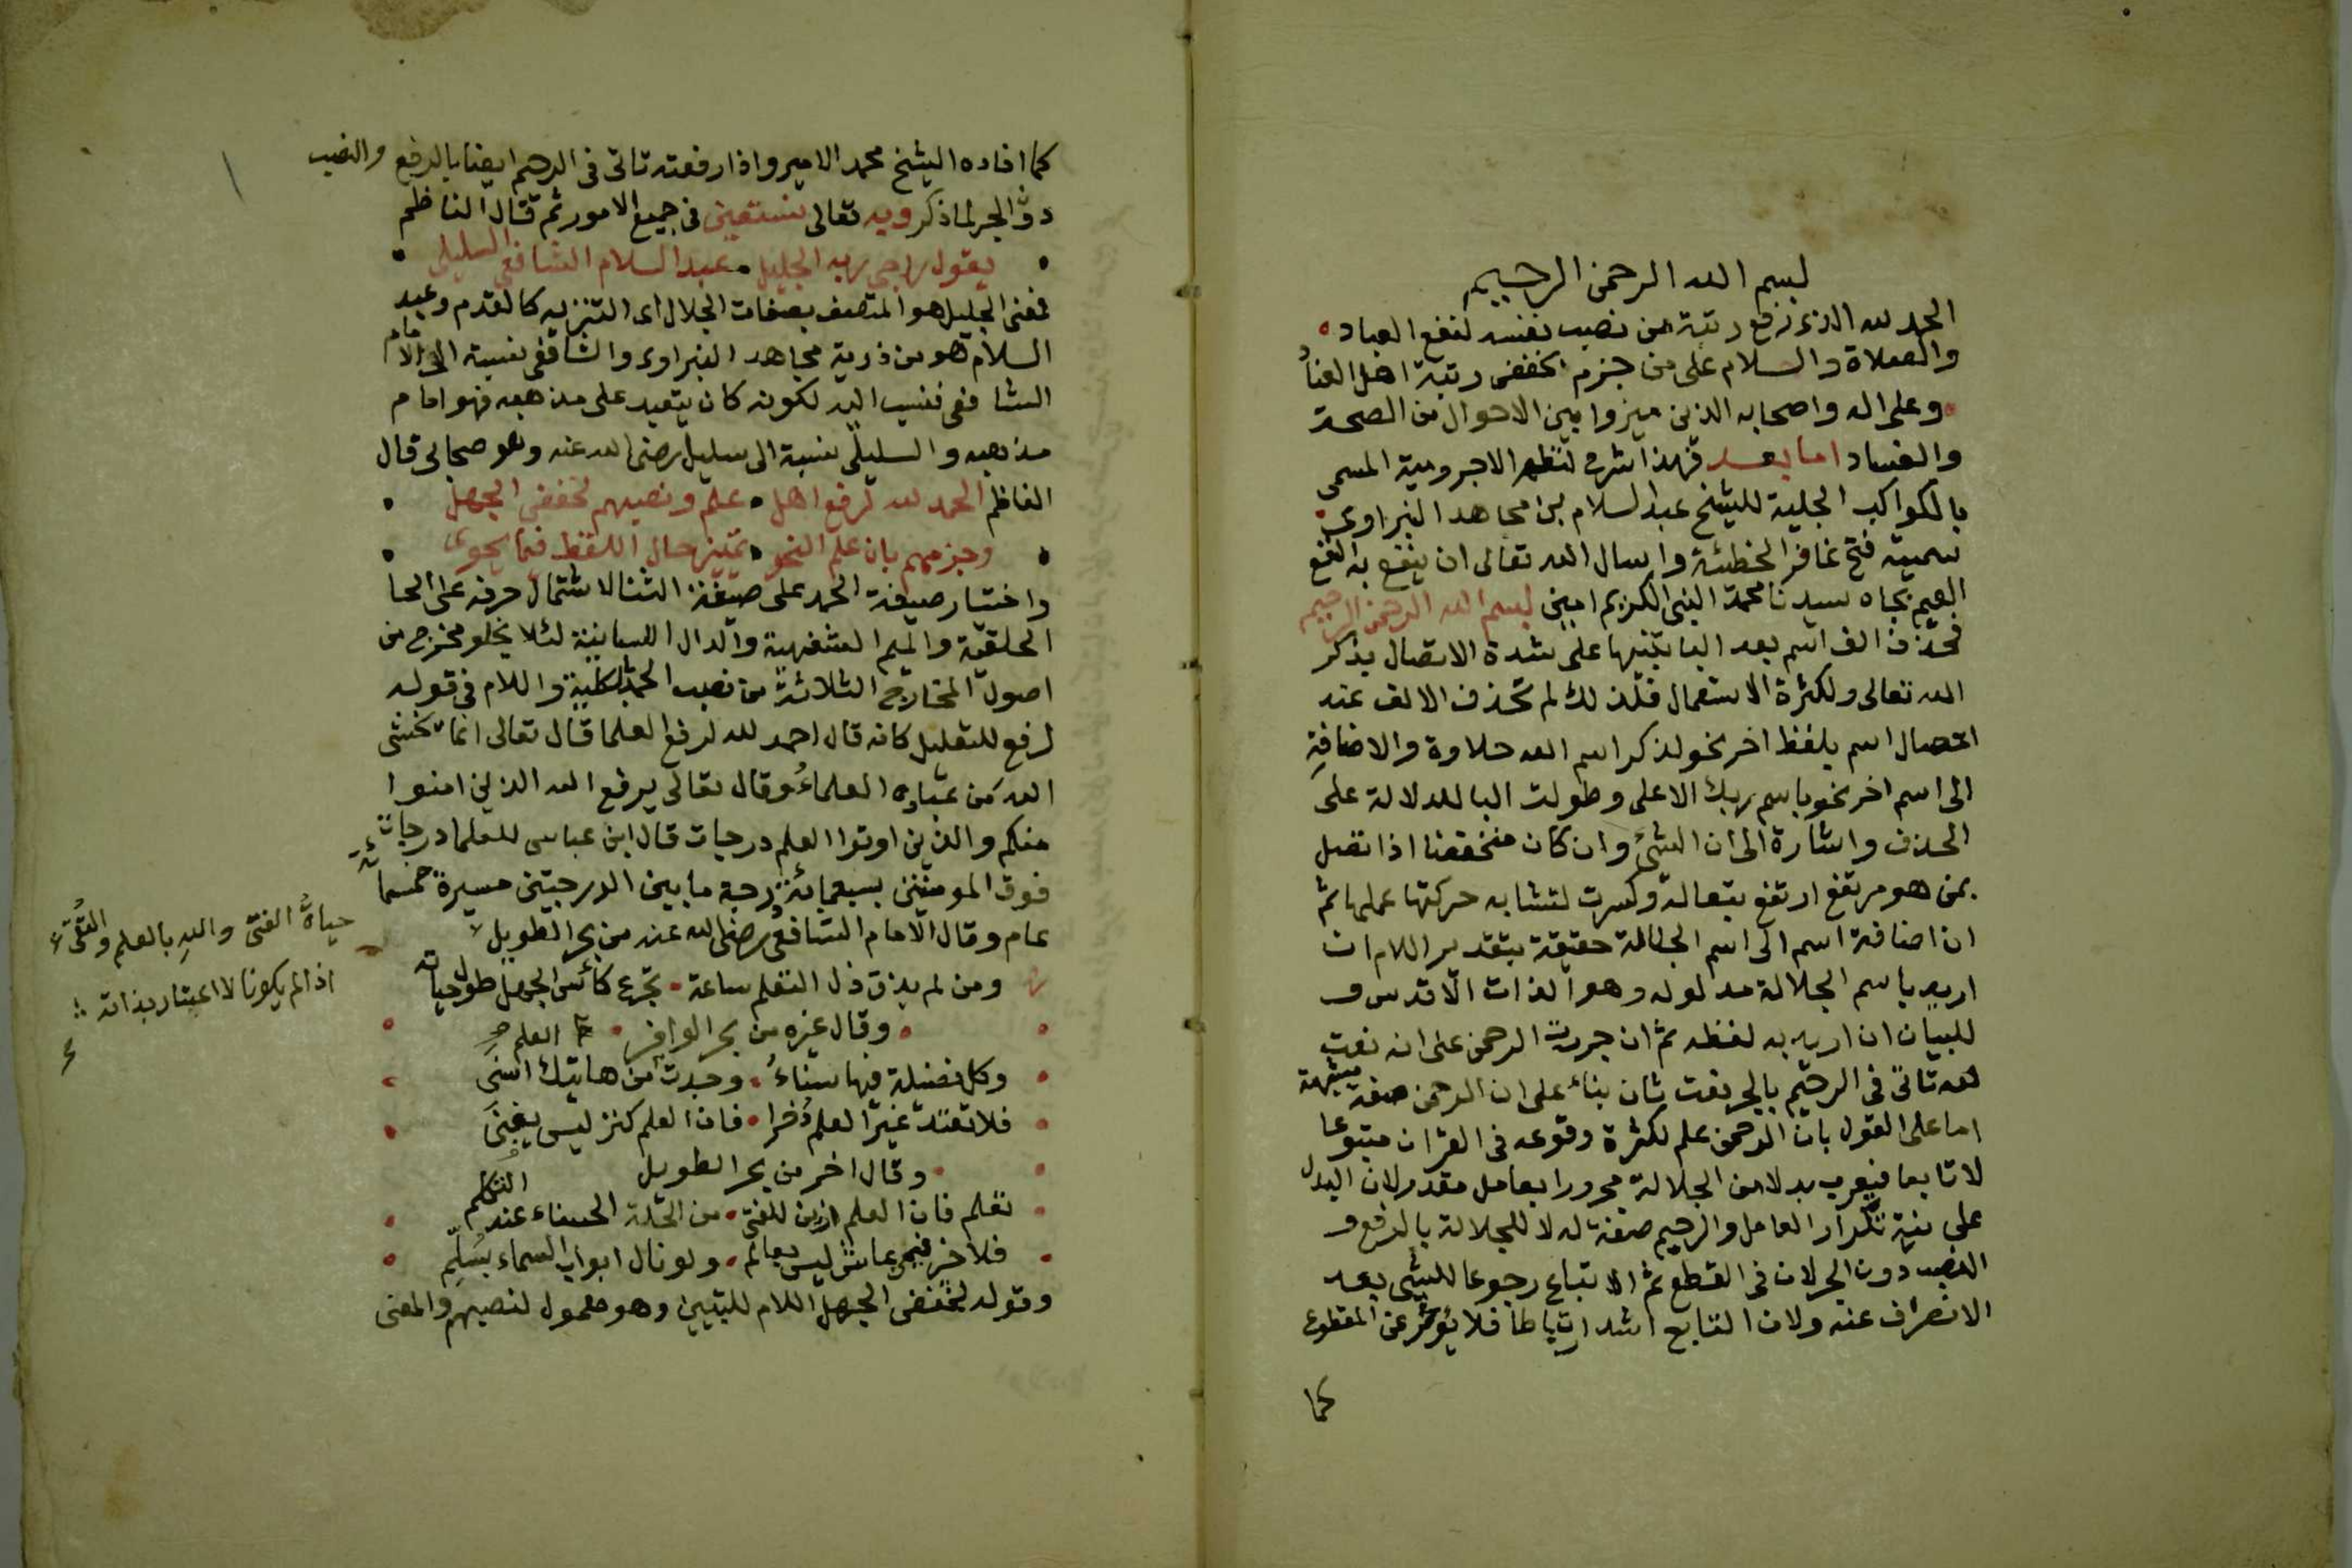 بسم الله الرحمن الرحيم
الحمد لله الذى رفع رتبة من نصب نفسه لنفع العباد
والصلاة والسلام على من جزم بخفض رتبة اهل العناد
وعلى اله واصحابه الذين ميزوا بين الاحوال من الصحة
والفساد اما بعد فهذا شرح لنظم الاجرومية المسمى
بالكواكب الجلية للشيخ عبد السلام بن مجاهد النبراوى
سميته فتح غافر الخطيئة واسال الله تعالى ان ينفع به النفع
العميم بجاه سيدنا محمد النبى الكريم امين بسم الله الرحمن الرحيم
فحذف الف اسم بعد البا تنبيها على شدة الاتصال بذكر
الله تعالى ولكثرة الاستعمال فلذلك لم تحذف الالف عند
اتصال اسم بلفظ اخر نحو لذكر اسم الله حلاوة والاضافة
الى اسم اخر نحو باسم ربك الاعلى وطولت البا للدلالة على
الحذف واشارة الى ان الشئ وان كان منخفضا اذا تصل
بمن هو مرتفع ارتفع بتعاله وكسرت لتشابه حركتها عملها ثم
ان اضافة اسم الى اسم الجلالة حقيقة بتقدير اللام ان
اريد باسم الجلالة مدلوله وهو الذات الاقدس و
للبيان ان اريد به لفظه ثم ان جررت الرحمن على انه نعت
لله تاتى فى الرحيم بالجر نعت ثان بناء على ان الرحمن صفة مشبهة
اما على القول بان الرحمن علم لكثرة وقوعه فى القران متبوعا
لا تابعا فيعرب بدلا من الجلالة مجرورا بعامل مقدر لان البدل
على نية تكرار العامل والرحيم صفة له لا للجلالة بالرفع و
النصب دون الجر لان فى القطع ثم الاتباع رجوعا للشئ بعد
الانصراف عنه ولان التابع اشد ارتباطا فلا يؤخر عن المقطوع
كما
كما افاده الشيخ محمد الامير واذا رفعته تاتى فى الرحيم ايضا بالرفع والنصب
دون الجر لما ذكر وبه تعالى نستعين فى جميع الامور ثم قال الناظم
يقول راجى ربه الجليل عبد السلام الشافعى السليلى
فمعنى الجليل هو المتصف بصفات الجلال اى التنزيه كالقدم وعبد
السلام هو من ذرية مجاهد النبراوى والشافعى نسبة الى الامام
الشافعى فنسب اليه لكونه كان يتعبد على مذهبه فهو امام
مذهبه والسليلى نسبة الى سليل رضى الله عنه وهو صحابى قال
الناظم الحمد لله لرفع اهل علم ونصبهم لخفض الجهل
وجزمهم بان علم النحو تمييز حال اللفظ فيما يحوى
واختار صيغة الحمد على صيغة الثنا لاشتمال حرفه على الحا
الحلقية والميم الشفهية والدال اللسانية لئلا يخلو مخرج من
اصول المخارج الثلاثة من نصب الحمد بالكلية واللام فى قوله
لرفع للتعليل كانه قال احمد لله لرفع العلما قال تعالى انما يخشى
الله من عباده العلماء وقال تعالى يرفع الله الذين امنوا
منكم والذين اوتوا العلم درجات قال ابن عباس للعلما درجات
فوق المومنين بسبعمائة درجة ما بين الدرجتين مسيرة خمسمائة
عام وقال الامام الشافعى رضى الله عنه من بحر الطويل
ومن لم يذق ذل التعلم ساعة تجرع كأس الجهل طول حياته
وقال غيره من بحر الوافر العلم
وكل فضيلة فيها سناء وجدت من هاتيك اسنى
فلا تعتد غير العلم ذخرا فان العلم كنز ليس يفنى
وقال اخر من بحر الطويل
تعلم فان العلم ازين للفتى من الحلة الحسناء عند التكلم
فلا خير فيمن عاش ليس بعالم ولو نال ابواب السماء بسلم
وقوله لخفض الجهل اللام للتبيين وهو معمول لنصبهم والمعنى
حياة الفتى والله بالعلم والتقى
اذا لم يكونا لا اعتبار بذاته